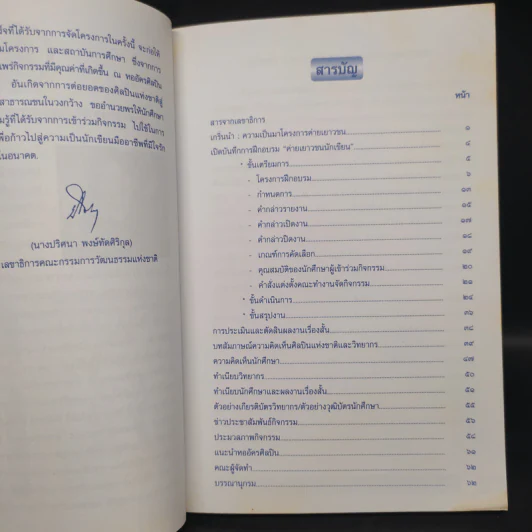 ร็จที่ได้รับจากการจัดโครงการในครั้งนี้ จะก่อให้
มโครงการ และสถาบันการศึกษา ซึ่งจากการ
แพร่กิจกรรมที่มีคุณค่าที่เกิดขึ้น ณ หออัครศิลปิน
อันเกิดจากการต่อยอดของศิลปินแห่งชาติสู่
สาธารณชนในวงกว้าง ขออำนวยพรให้นักศึกษา
มรู้ที่ได้รับจากการเข้าร่วมกิจกรรม ไปใช้ในการ
พื่อก้าวไปสู่ความเป็นนักเขียนมืออาชีพที่มีใจรัก
ในอนาคต.
(นางปริศนา พงษ์ทัดศิริกุล)
เลขาธิการคณะกรรมการวัฒนธรรมแห่งชาติ
สารบัญ
หน้า
สารจากเลขาธิการ
เกริ่นนำ : ความเป็นมาโครงการค่ายเยาวชน ๑
เปิดบันทึกการฝึกอบรม "ค่ายเยาวชนนักเขียน" ๔
* ขั้นเตรียมการ ๕
- โครงการฝึกอบรม ๖
- กำหนดการ ๑๓
- คำกล่าวรายงาน ๑๕
- คำกล่าวเปิดงาน ๑๗
- คำกล่าวปิดงาน ๑๘
- เกณฑ์การคัดเลือก ๑๙
- คุณสมบัติของนักศึกษาผู้เข้าร่วมกิจกรรม ๒๐
- คำสั่งแต่งตั้งคณะทำงานจัดกิจกรรม ๒๑
* ขั้นดำเนินการ ๒๔
* ขั้นสรุปงาน ๓๖
การประเมินและตัดสินผลงานเรื่องสั้น ๓๘
บทสัมภาษณ์ความคิดเห็นศิลปินแห่งชาติและวิทยากร ๓๙
ความคิดเห็นนักศึกษา ๔๗
ทำเนียบวิทยากร ๕๐
ทำเนียบนักศึกษาและผลงานเรื่องสั้น ๕๑
ตัวอย่างเกียรติบัตรวิทยากร/ตัวอย่างวุฒิบัตรนักศึกษา ๕๕
ข่าวประชาสัมพันธ์กิจกรรม ๕๖
ประมวลภาพกิจกรรม ๕๘
แนะนำหออัครศิลปิน ๖๑
คณะผู้จัดทำ ๖๒
บรรณานุกรม ๖๒